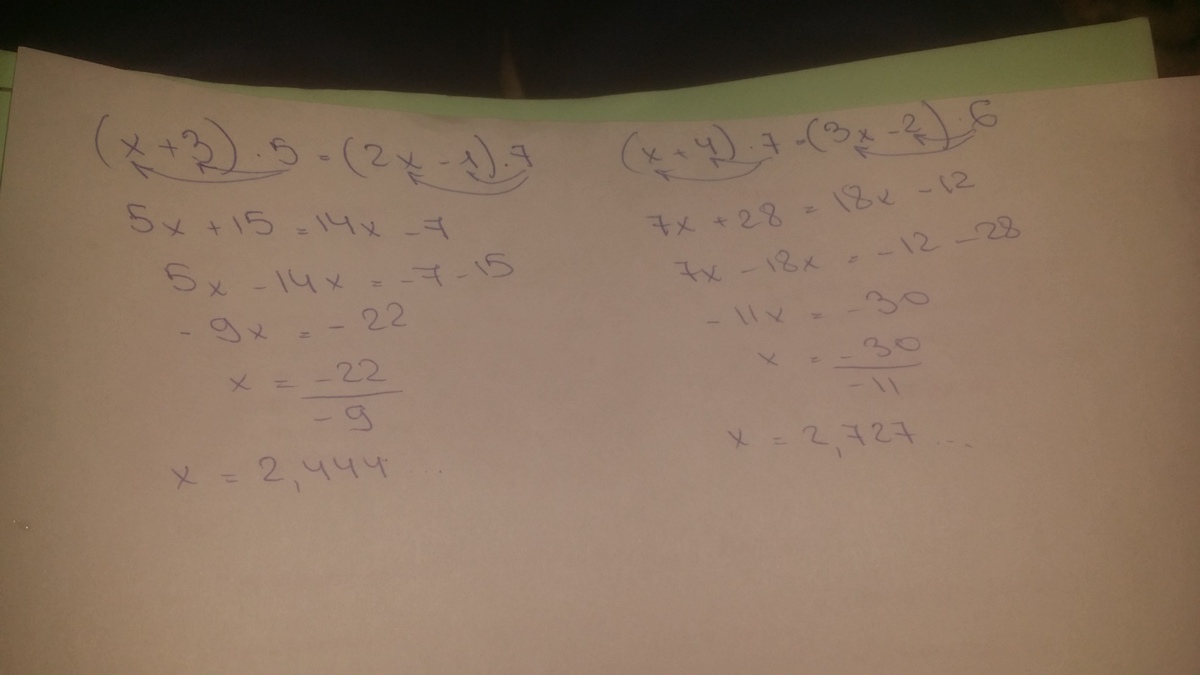 (x+3)·5=(2x-1)·7
5x+15=14x-7
5x-14x=-7-15
-9x=-22
x=-22/-9
x=2,444...
(x+4)·7=(3x-2)·6
7x+28=18x-12
7x-18x=-12-28
-11x=-30
x=-30/-11
x=2,727...